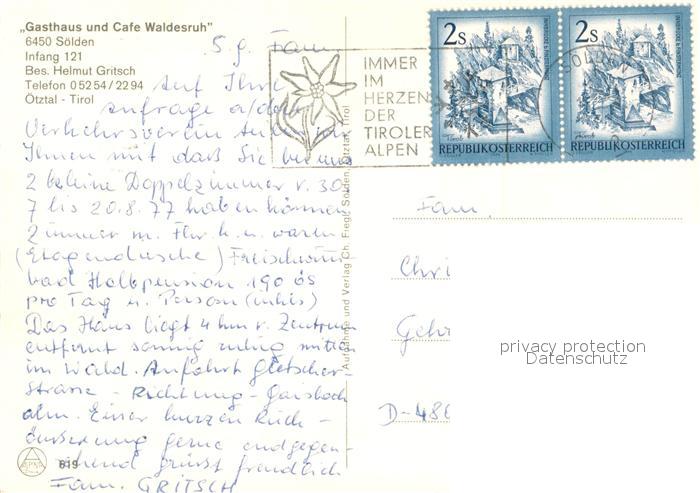 „Gasthaus und Cafe Waldesruh"
6450 Sölden
Infang 121
Bes. Helmut Gritsch
Telefon 0 52 54 / 22 94
Ötztal - Tirol
S. g. Fam.
auf Ihre
Anfrage a/d
Verkehrsverein
Ihnen mit daß Sie bei uns
2 kleine Doppelzimmer v. 30.
7 bis 20.8.77 haben können
Zimmer m. Fl k. u. warm
(Etagendusche) Freischwimm
bad Halbpension 190 öS
pro Tag u. Person (inkls)
Das Haus liegt 4 km v. Zentrum
entfernt sonnig ruhig mitten
im Wald. Anfahrt Gletscher-
strasse - Richtung - Gaisbach
alm. Einer kurzen Rück-
äusserung gerne endgegen-
sehend grüsst freundlich
Fam. GRITSCH
819
Aufnahme und Verlag Ch. Fiegl, Sölden, Ötztal, Tirol
IMMER
IM
HERZEN
DER
TIROLER
ALPEN
2S
REPUBLIK ÖSTERREICH
2S
REPUBLIK ÖSTERREICH
Fam.
Chri
Gehr
D-486
privacy protection
Datenschutz